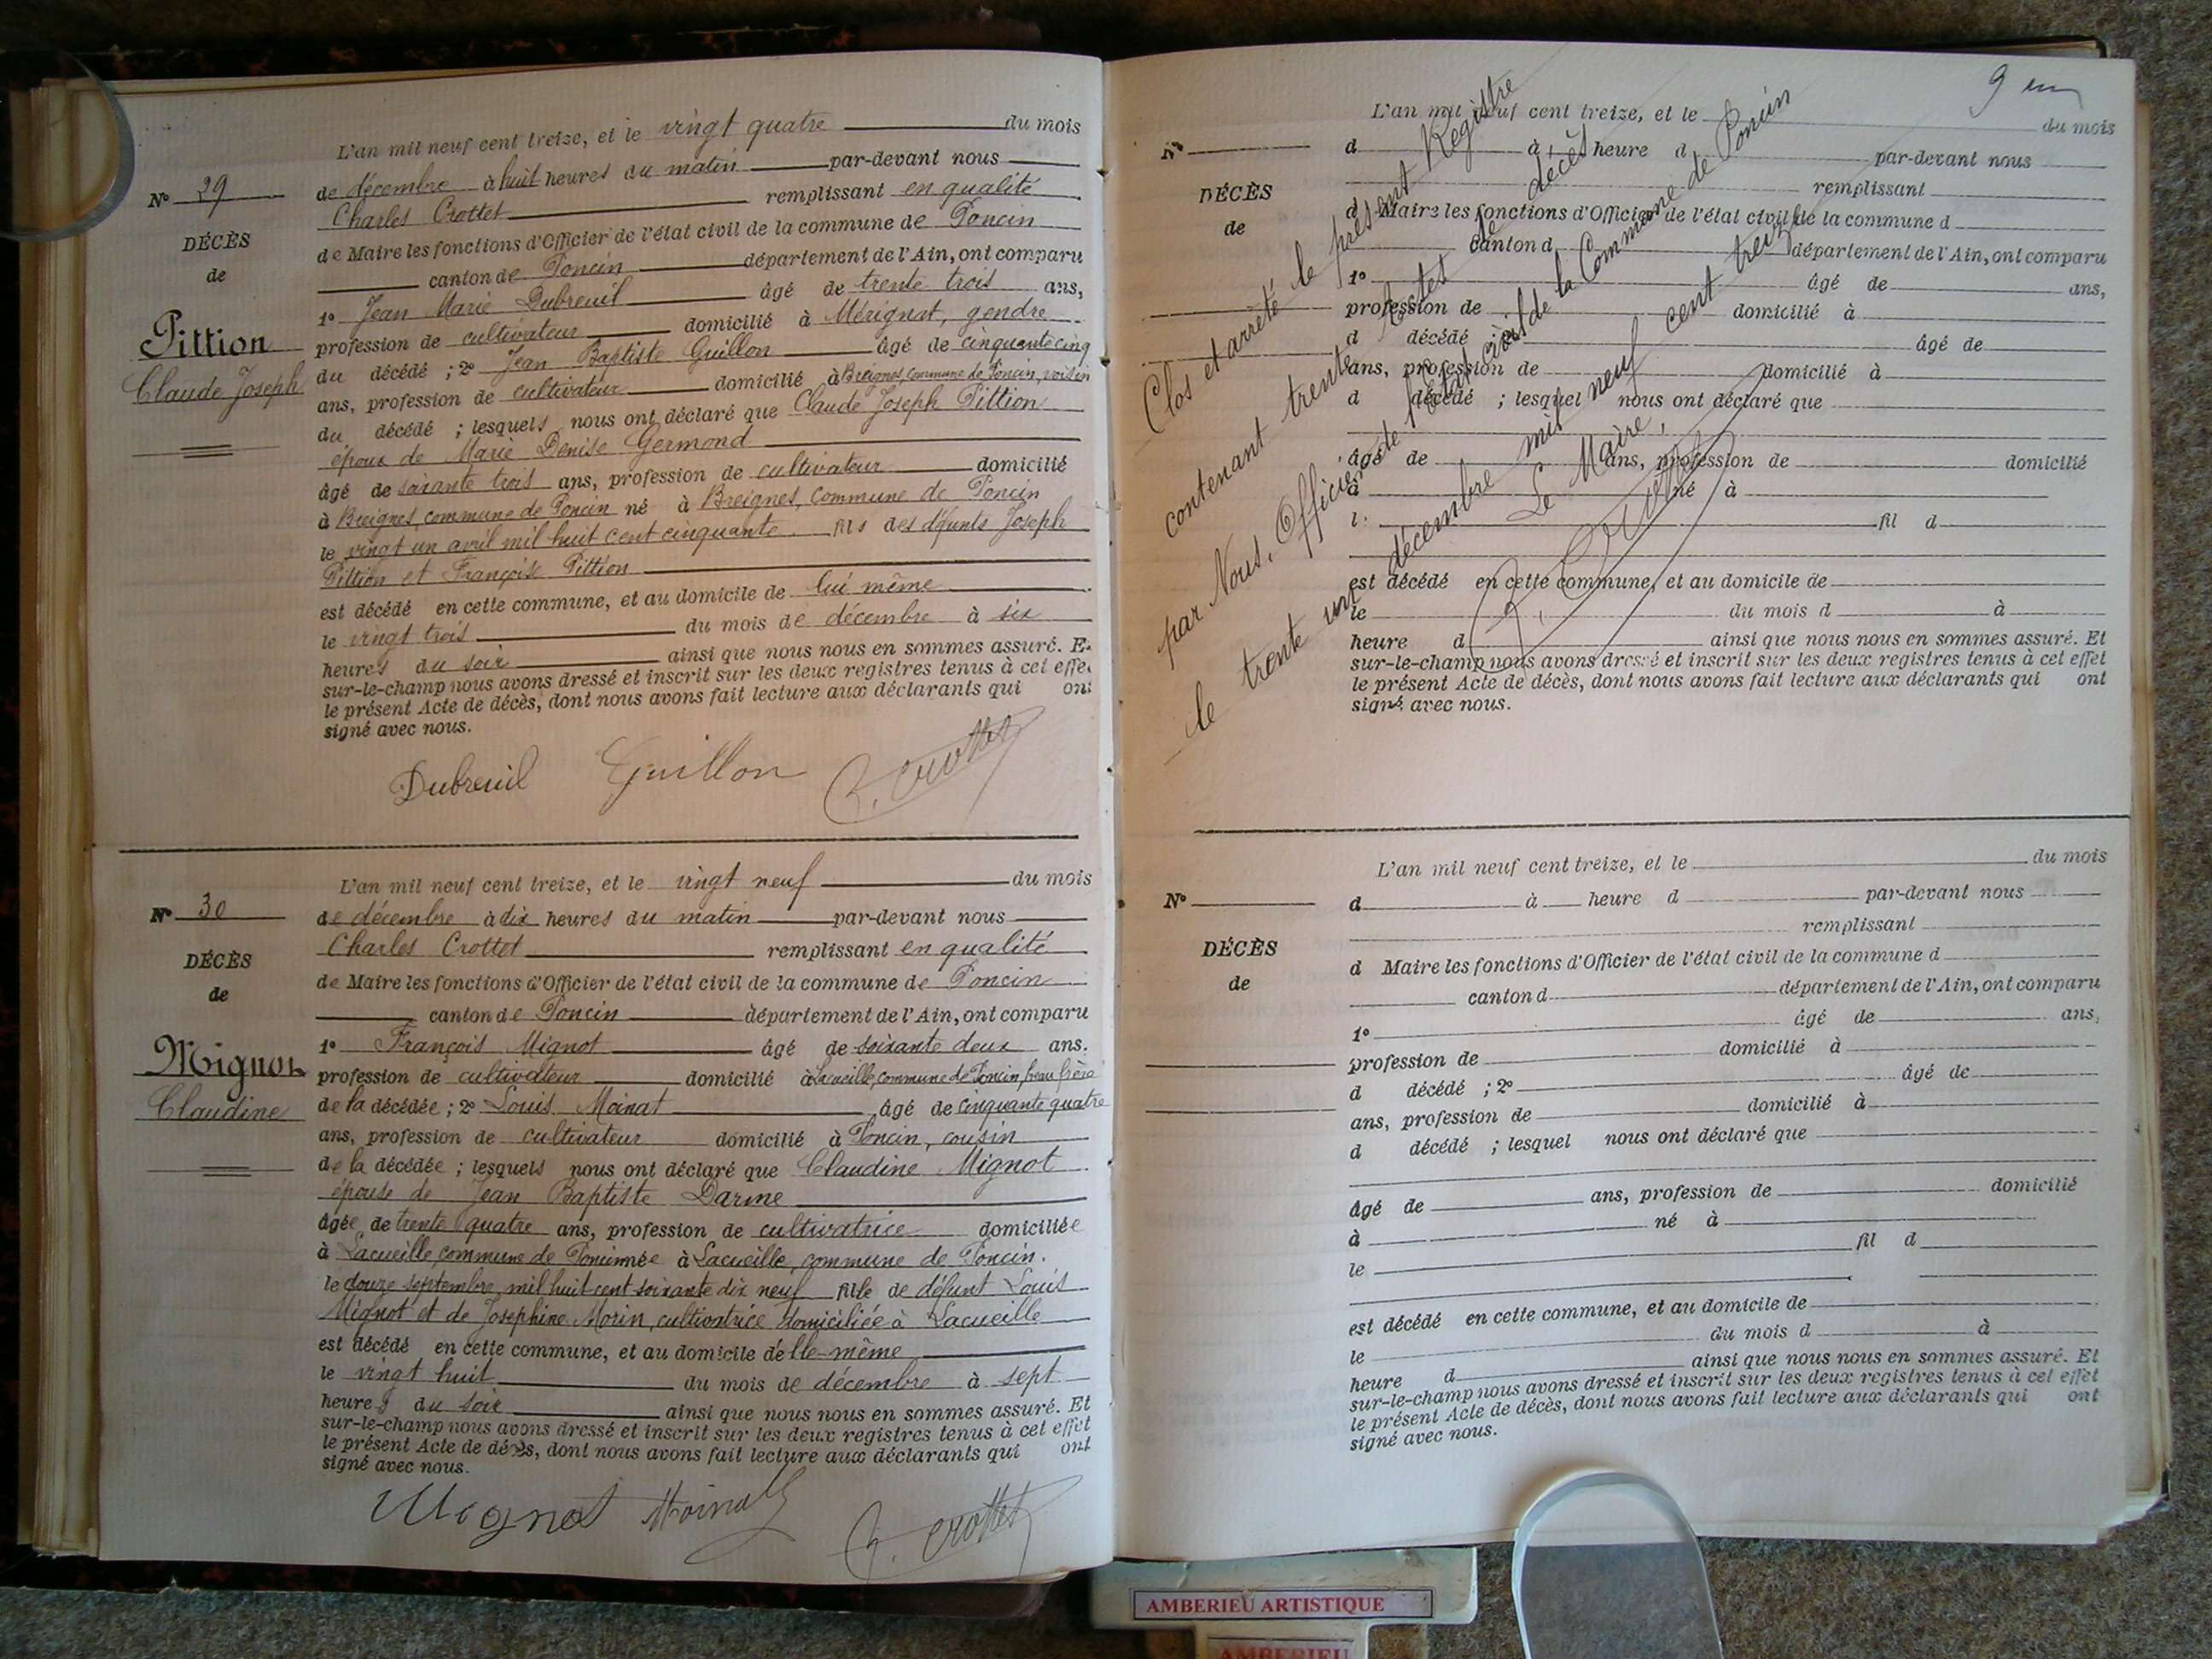 L'an mil neuf cent treize, et le vingt quatre du mois
de décembre à huit heures du matin par-devant nous
Nº 29
Charles Crottet remplissant en qualité
DÉCÈS
de Maire les fonctions d'Officier de l'état civil de la commune de Poncin
de
canton de Poncin département de l'Ain, ont comparu
1º Jean Marie Dubreuil âgé de trente trois ans,
Pittion
profession de cultivateur domicilié à Mérignat, gendre
Claude Joseph
du décédé ; 2º Jean Baptiste Guillon âgé de cinquante cinq
ans, profession de cultivateur domicilié à Breignes, commune de Poncin, voisin
du décédé ; lesquels nous ont déclaré que Claude Joseph Pittion
époux de Marie Denise Germond
âgé de soixante trois ans, profession de cultivateur domicilié
à Breignes, commune de Poncin né à Breignes, commune de Poncin
le vingt un avril mil huit cent cinquante fils des défunts Joseph
Pittion et Françoise Pittion
est décédé en cette commune, et au domicile de lui même
le vingt trois du mois de décembre à six
heures du soir ainsi que nous nous en sommes assuré. E
sur-le-champ nous avons dressé et inscrit sur les deux registres tenus à cet effe
le présent Acte de décès, dont nous avons fait lecture aux déclarants qui ont
signé avec nous.
Dubreuil Guillon C. Crottet
L'an mil neuf cent treize, et le vingt neuf du mois
Nº 30
de décembre à dix heures du matin par-devant nous
Charles Crottet remplissant en qualité
DÉCÈS
de Maire les fonctions d'Officier de l'état civil de la commune de Poncin
de
canton de Poncin département de l'Ain, ont comparu
Mignot
1º François Mignot âgé de soixante deux ans.
profession de cultivateur domicilié à Lacueille, commune de Poncin, beau frère
Claudine
de la décédée ; 2º Louis Moinat âgé de cinquante quatre
ans, profession de cultivateur domicilié à Poncin, cousin
de la décédée ; lesquels nous ont déclaré que Claudine Mignot
épouse de Jean Baptiste Darme
âgée de trente quatre ans, profession de cultivatrice domiciliée
à Lacueille, commune de Poncin née à Lacueille, commune de Poncin.
le douze septembre mil huit cent soixante dix neuf fille de défunt Louis
Mignot et de Josephine Morin, cultivatrice domiciliée à Lacueille
est décédé en cette commune, et au domicile d'elle-même
le vingt huit du mois de décembre à sept
heures du soir ainsi que nous nous en sommes assuré. Et
sur-le-champ nous avons dressé et inscrit sur les deux registres tenus à cet effet
le présent Acte de décès, dont nous avons fait lecture aux déclarants qui ont
signé avec nous.
Mignot Moinat C. Crottet
9
L'an mil neuf cent treize, et le du mois
Nº
d à heure d par-devant nous
remplissant
DÉCÈS
d Maire les fonctions d'Officier de l'état civil de la commune d
de
canton d département de l'Ain, ont comparu
1º âgé de ans,
profession de domicilié à
d décédé âgé de
ans, profession de domicilié à
d décédé ; lesquel nous ont déclaré que
âgé de ans, profession de domicilié
à né à
l fil d
est décédé en cette commune, et au domicile de
le du mois d à
heure d ainsi que nous nous en sommes assuré. Et
sur-le-champ nous avons dressé et inscrit sur les deux registres tenus à cet effet
le présent Acte de décès, dont nous avons fait lecture aux déclarants qui ont
signé avec nous.
Clos et arrêté le présent Registre
contenant trente Actes de décès
par Nous, Officier de l'état civil de la Commune de Poncin
le trente un décembre mil neuf cent treize
Le Maire,
C. Crottet
L'an mil neuf cent treize, et le du mois
Nº
d à heure d par-devant nous
remplissant
DÉCÈS
d Maire les fonctions d'Officier de l'état civil de la commune d
de
canton d département de l'Ain, ont comparu
1º âgé de ans,
profession de domicilié à
d décédé ; 2º âgé de
ans, profession de domicilié à
d décédé ; lesquel nous ont déclaré que
âgé de ans, profession de domicilié
à né à
le fil d
est décédé en cette commune, et au domicile de
le du mois d à
heure d ainsi que nous nous en sommes assuré. Et
sur-le-champ nous avons dressé et inscrit sur les deux registres tenus à cet effet
le présent Acte de décès, dont nous avons fait lecture aux déclarants qui ont
signé avec nous.
AMBERIEU ARTISTIQUE
AMBERIEU